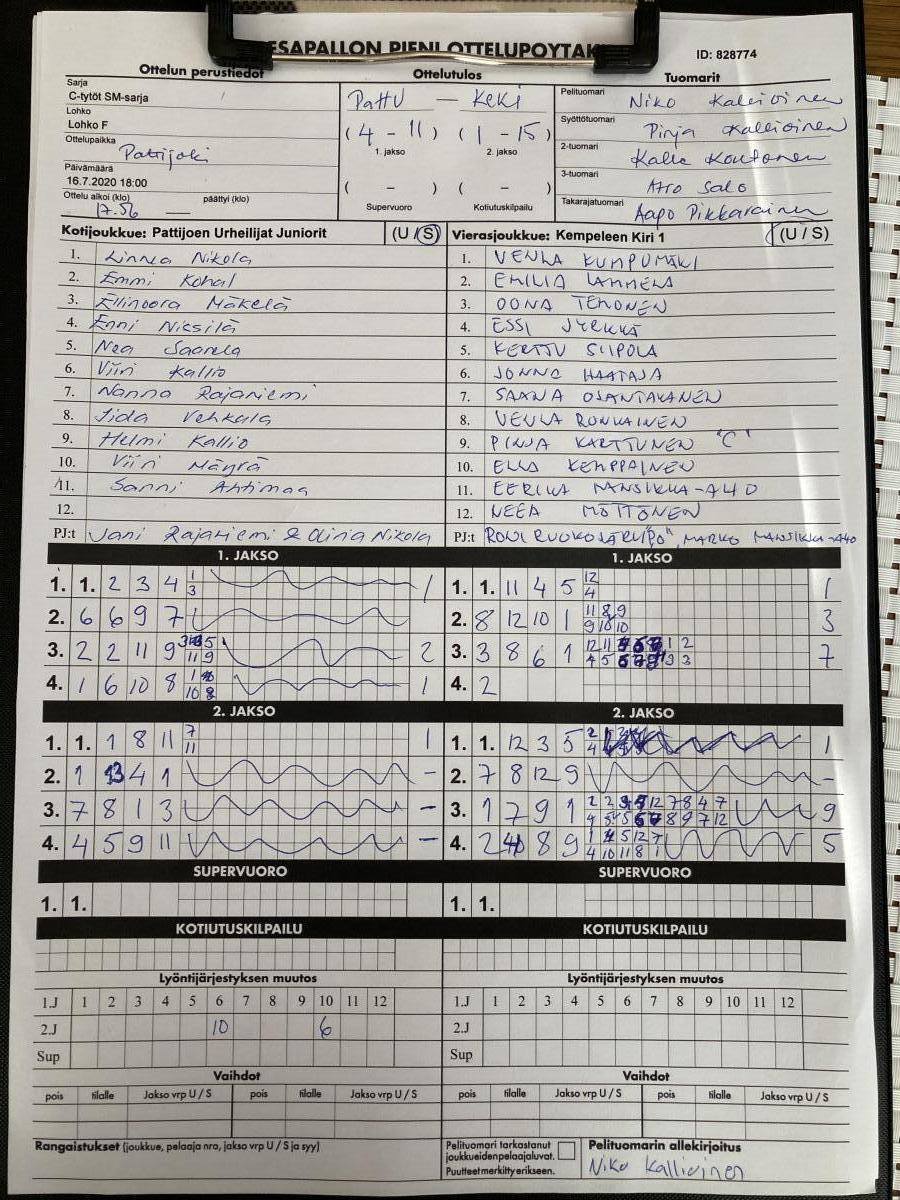 ESAPALLON PIENI OTTELUPÖYTÄK
ID: 828774
Ottelun perustiedot
Ottelutulos
Tuomarit
Sarja
C-tytöt SM-sarja
Lohko
Lohko F
Ottelupaikka
Pattijoki
Päivämäärä
16.7.2020 18:00
Ottelu alkoi (klo) päättyi (klo)
17.56 —
PattU — KeKi
(4 - 11) (1 - 15)
1. jakso 2. jakso
( - ) ( - )
Supervuoro Kotiutuskilpailu
Pelituomari Niko Kallioinen
Syöttötuomari Pinja Kallioinen
2-tuomari Kalle Koutonen
3-tuomari Atro Salo
Takarajatuomari Aapo Pikkarainen
Kotijoukkue: Pattijoen Urheilijat Juniorit (U / S)
1. Linnea Nikola
2. Emmi
3. Ellinoora Mäkelä
4. Enni Niksilä
5. Nea Saarela
6. Viiri Kallio
7. Nanna Rajaniemi
8. Iida Vehkala
9. Helmi Kallio
10. Viiri Mäyrä
11. Sanni Ahtimaa
12.
PJ:t Jani Rajaniemi & Olivia Nikola
Vierasjoukkue: Kempeleen Kiri 1 (U / S)
1. VENLA KUMPUMÄKI
2. EMILIA LAMMELA
3. OONA TEMONEN
4. ESSI JYRKKÄ
5. KERTTU SIIPOLA
6. JONNA HAATAJA
7. SAANA OJANTAKANEN
8. VENLA RONKAINEN
9. PINJA KARTTUNEN "C"
10. ELLA KEMPPAINEN
11. EERIKA MANSIKKA-AHO
12. NEEA MÖTTÖNEN
PJ:t RONI RUOKOJÄRVI, MARKO MANSIKKA-AHO
1. JAKSO
1. 1. 2 3 4 1 1
3
2. 6 6 9 7
3. 2 2 11 9 2
11 9
4. 1 6 10 8 1
10 8
1. JAKSO
1. 1. 11 4 5 12 1
4
2. 8 12 10 1 11 8 9 3
9 10 10
3. 3 8 6 1 12 11 7
4 5
4. 2
2. JAKSO
1. 1. 1 8 11 7 1
11
2. 1 4 1 -
3. 7 8 1 3 -
4. 4 5 9 11 -
2. JAKSO
1. 1. 12 3 5 2 1
4
2. 7 8 12 9 -
3. 1 7 9 1 2 2 12 7 8 4 7 9
8 9 7 12
4. 2 8 9 1 5 12 7 5
4 10 11 8 1
SUPERVUORO
1. 1.
SUPERVUORO
1. 1.
KOTIUTUSKILPAILU
KOTIUTUSKILPAILU
Lyöntijärjestyksen muutos
1.J 1 2 3 4 5 6 7 8 9 10 11 12
2.J 10 6
Sup
Lyöntijärjestyksen muutos
1.J 1 2 3 4 5 6 7 8 9 10 11 12
2.J
Sup
Vaihdot
pois tilalle Jakso vrp U / S pois tilalle Jakso vrp U / S
Vaihdot
pois tilalle Jakso vrp U / S pois tilalle Jakso vrp U / S
Rangaistukset (joukkue, pelaaja nro, jakso vrp U / S ja syy)
Pelituomari tarkastanut
joukkueiden pelaajaluvat.
Puutteet merkitty erikseen.
Pelituomarin allekirjoitus
Niko Kallioinen